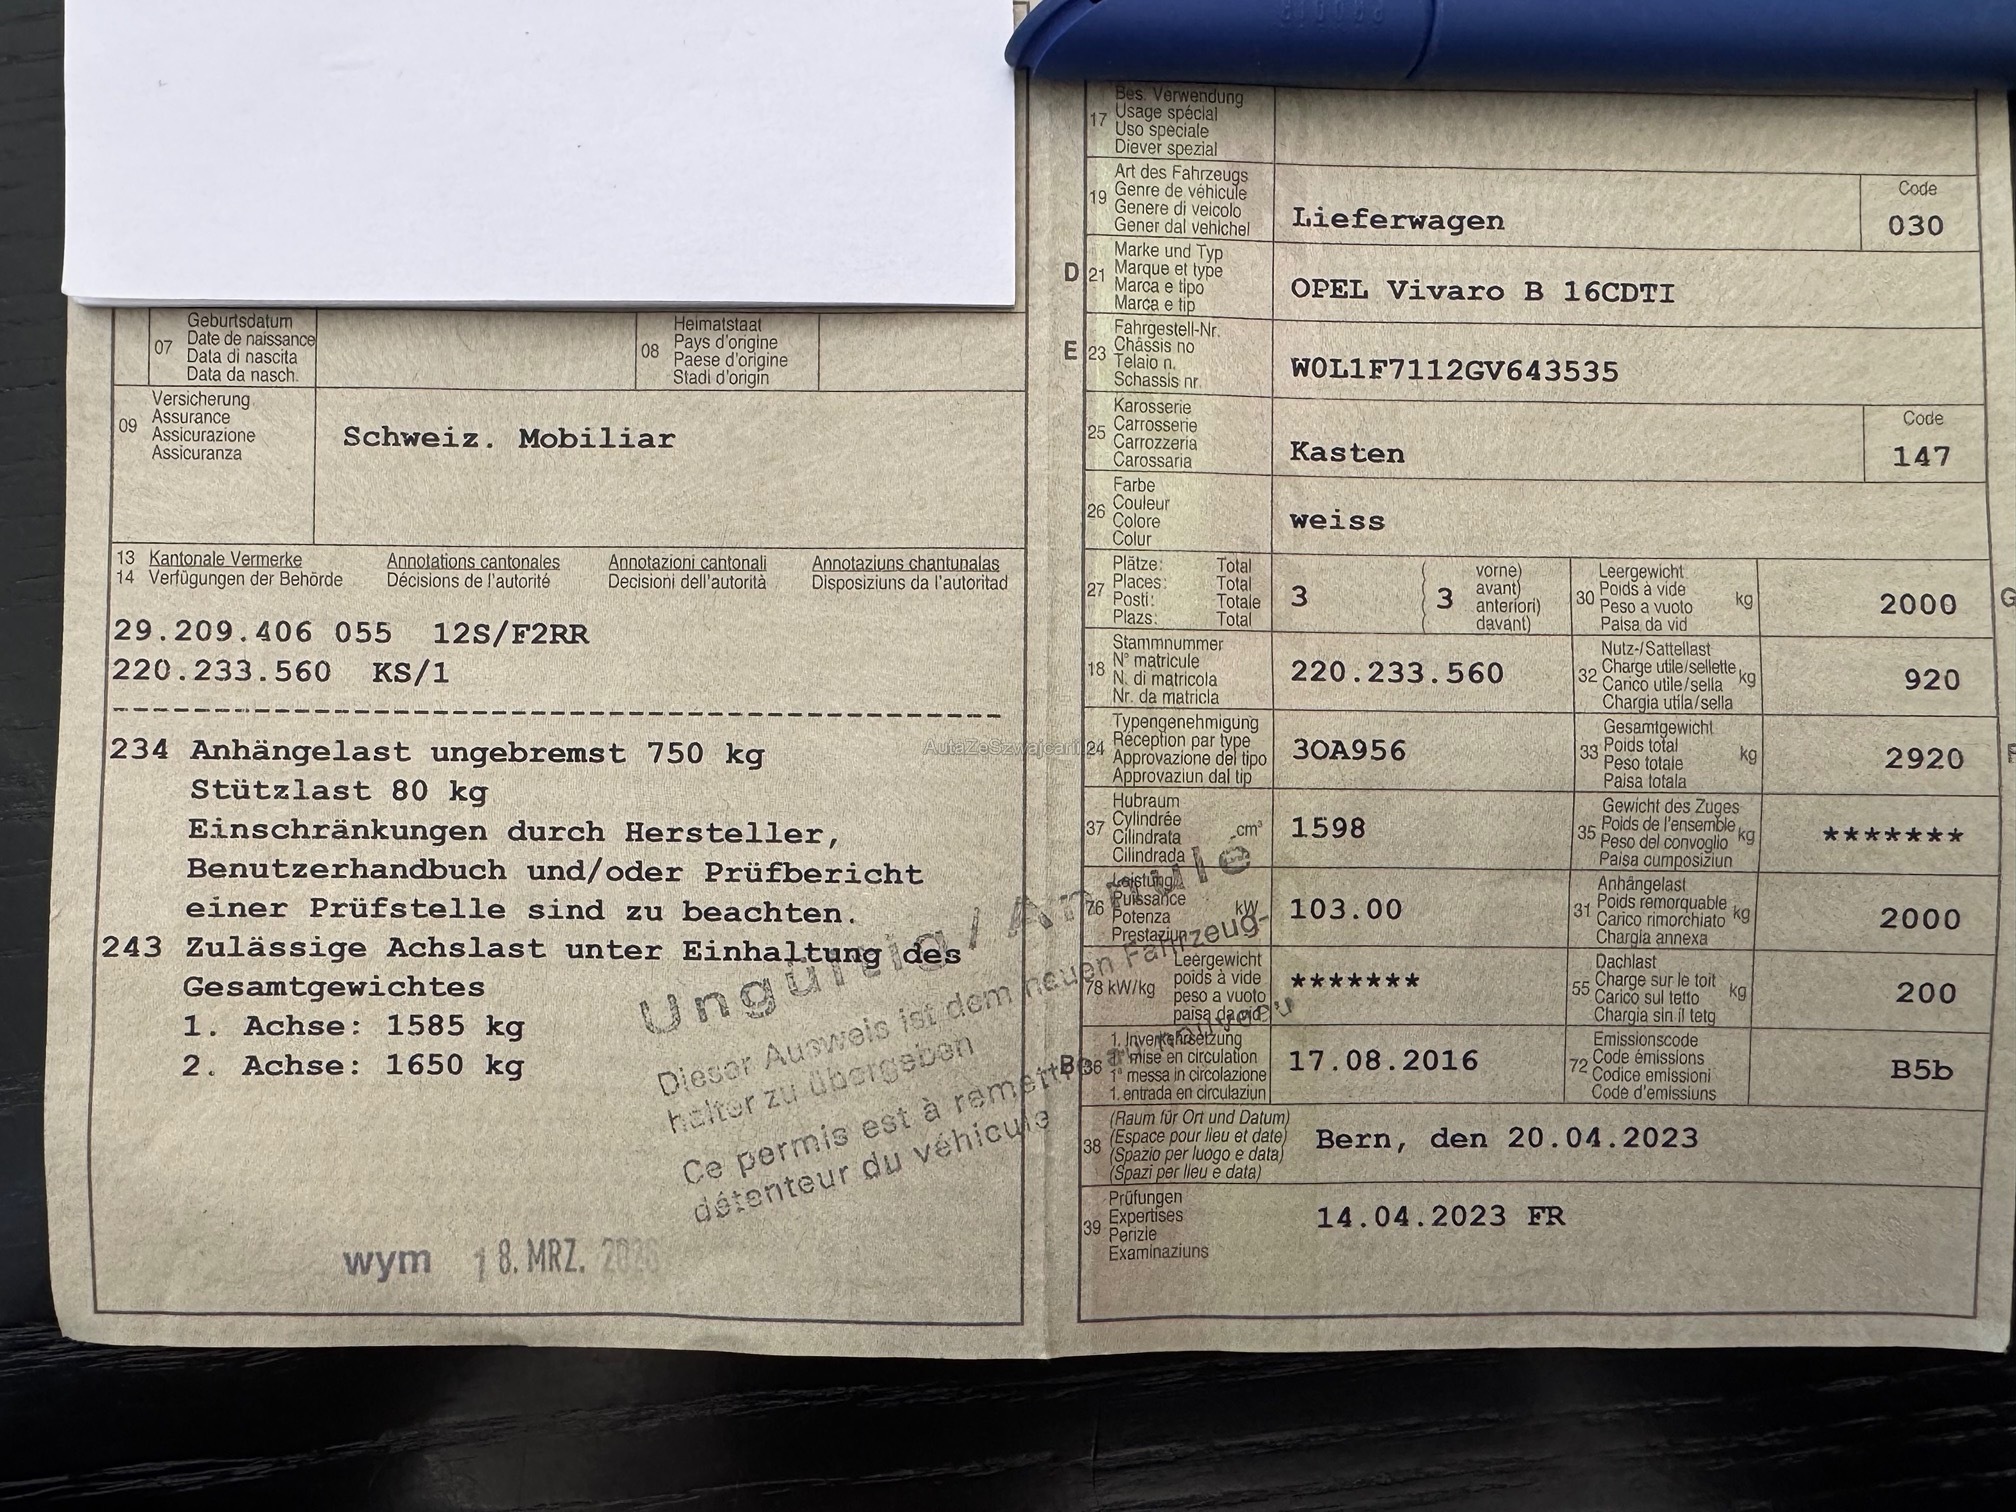 07 Geburtsdatum
Date de naissance
Data di nascita
Data da nasch.
08 Heimatstaat
Pays d'origine
Paese d'origine
Stadi d'origin
09 Versicherung
Assurance
Assicurazione
Assicuranza
Schweiz. Mobiliar
13 Kantonale Vermerke Annotations cantonales Annotazioni cantonali Annotaziuns chantunalas
14 Verfügungen der Behörde Décisions de l'autorité Decisioni dell'autorità Disposiziuns da l'autoritad
29.209.406 055 12S/F2RR
220.233.560 KS/1
234 Anhängelast ungebremst 750 kg
Stützlast 80 kg
Einschränkungen durch Hersteller,
Benutzerhandbuch und/oder Prüfbericht
einer Prüfstelle sind zu beachten.
243 Zulässige Achslast unter Einhaltung des
Gesamtgewichtes
1. Achse: 1585 kg
2. Achse: 1650 kg
Ungültig / Annulé
Dieser Ausweis ist dem neuen Fahrzeug-
halter zu übergeben
Ce permis est à remettre au nouveau
détenteur du véhicule
wym 18. MRZ.
17 Bes. Verwendung
Usage spécial
Uso speciale
Diever spezial
19 Art des Fahrzeugs
Genre de véhicule
Genere di veicolo
Gener dal vehichel
Lieferwagen
Code
030
D 21 Marke und Typ
Marque et type
Marca e tipo
Marca e tip
OPEL Vivaro B 16CDTI
E 23 Fahrgestell-Nr.
Châssis no
Telaio n.
Schassis nr.
W0L1F7112GV643535
25 Karosserie
Carrosserie
Carrozzeria
Carossaria
Kasten
Code
147
26 Farbe
Couleur
Colore
Colur
weiss
27 Plätze: Total
Places: Total
Posti: Totale
Plazs: Total
3
( 3 vorne)
avant)
anteriori)
davant)
30 Leergewicht
Poids à vide kg
Peso a vuoto
Paisa da vid
2000
G
18 Stammnummer
N° matricule
N. di matricola
Nr. da matricla
220.233.560
32 Nutz-/Sattellast
Charge utile/sellette kg
Carico utile/sella
Chargia utila/sella
920
24 Typengenehmigung
Réception par type
Approvazione del tipo
Approvaziun dal tip
3OA956
33 Gesamtgewicht
Poids total kg
Peso totale
Paisa totala
2920
37 Hubraum
Cylindrée cm³
Cilindrata
Cilindrada
1598
35 Gewicht des Zuges
Poids de l'ensemble kg
Peso del convoglio
Paisa cumposiziun
*******
76 Leistung
Puissance kW
Potenza
Prestaziun
103.00
31 Anhängelast
Poids remorquable kg
Carico rimorchiato
Chargia annexa
2000
78 kW/kg Leergewicht
poids à vide
peso a vuoto
paisa da vid
*******
55 Dachlast
Charge sur le toit kg
Carico sul tetto
Chargia sin il tetg
200
B 36 1. Inverkehrsetzung
1ère mise en circulation
1ª messa in circolazione
1. entrada en circulaziun
17.08.2016
72 Emissionscode
Code émissions
Codice emissioni
Code d'emissiuns
B5b
38 (Raum für Ort und Datum)
(Espace pour lieu et date)
(Spazio per luogo e data)
(Spazi per lieu e data)
Bern, den 20.04.2023
39 Prüfungen
Expertises
Perizie
Examinaziuns
14.04.2023 FR